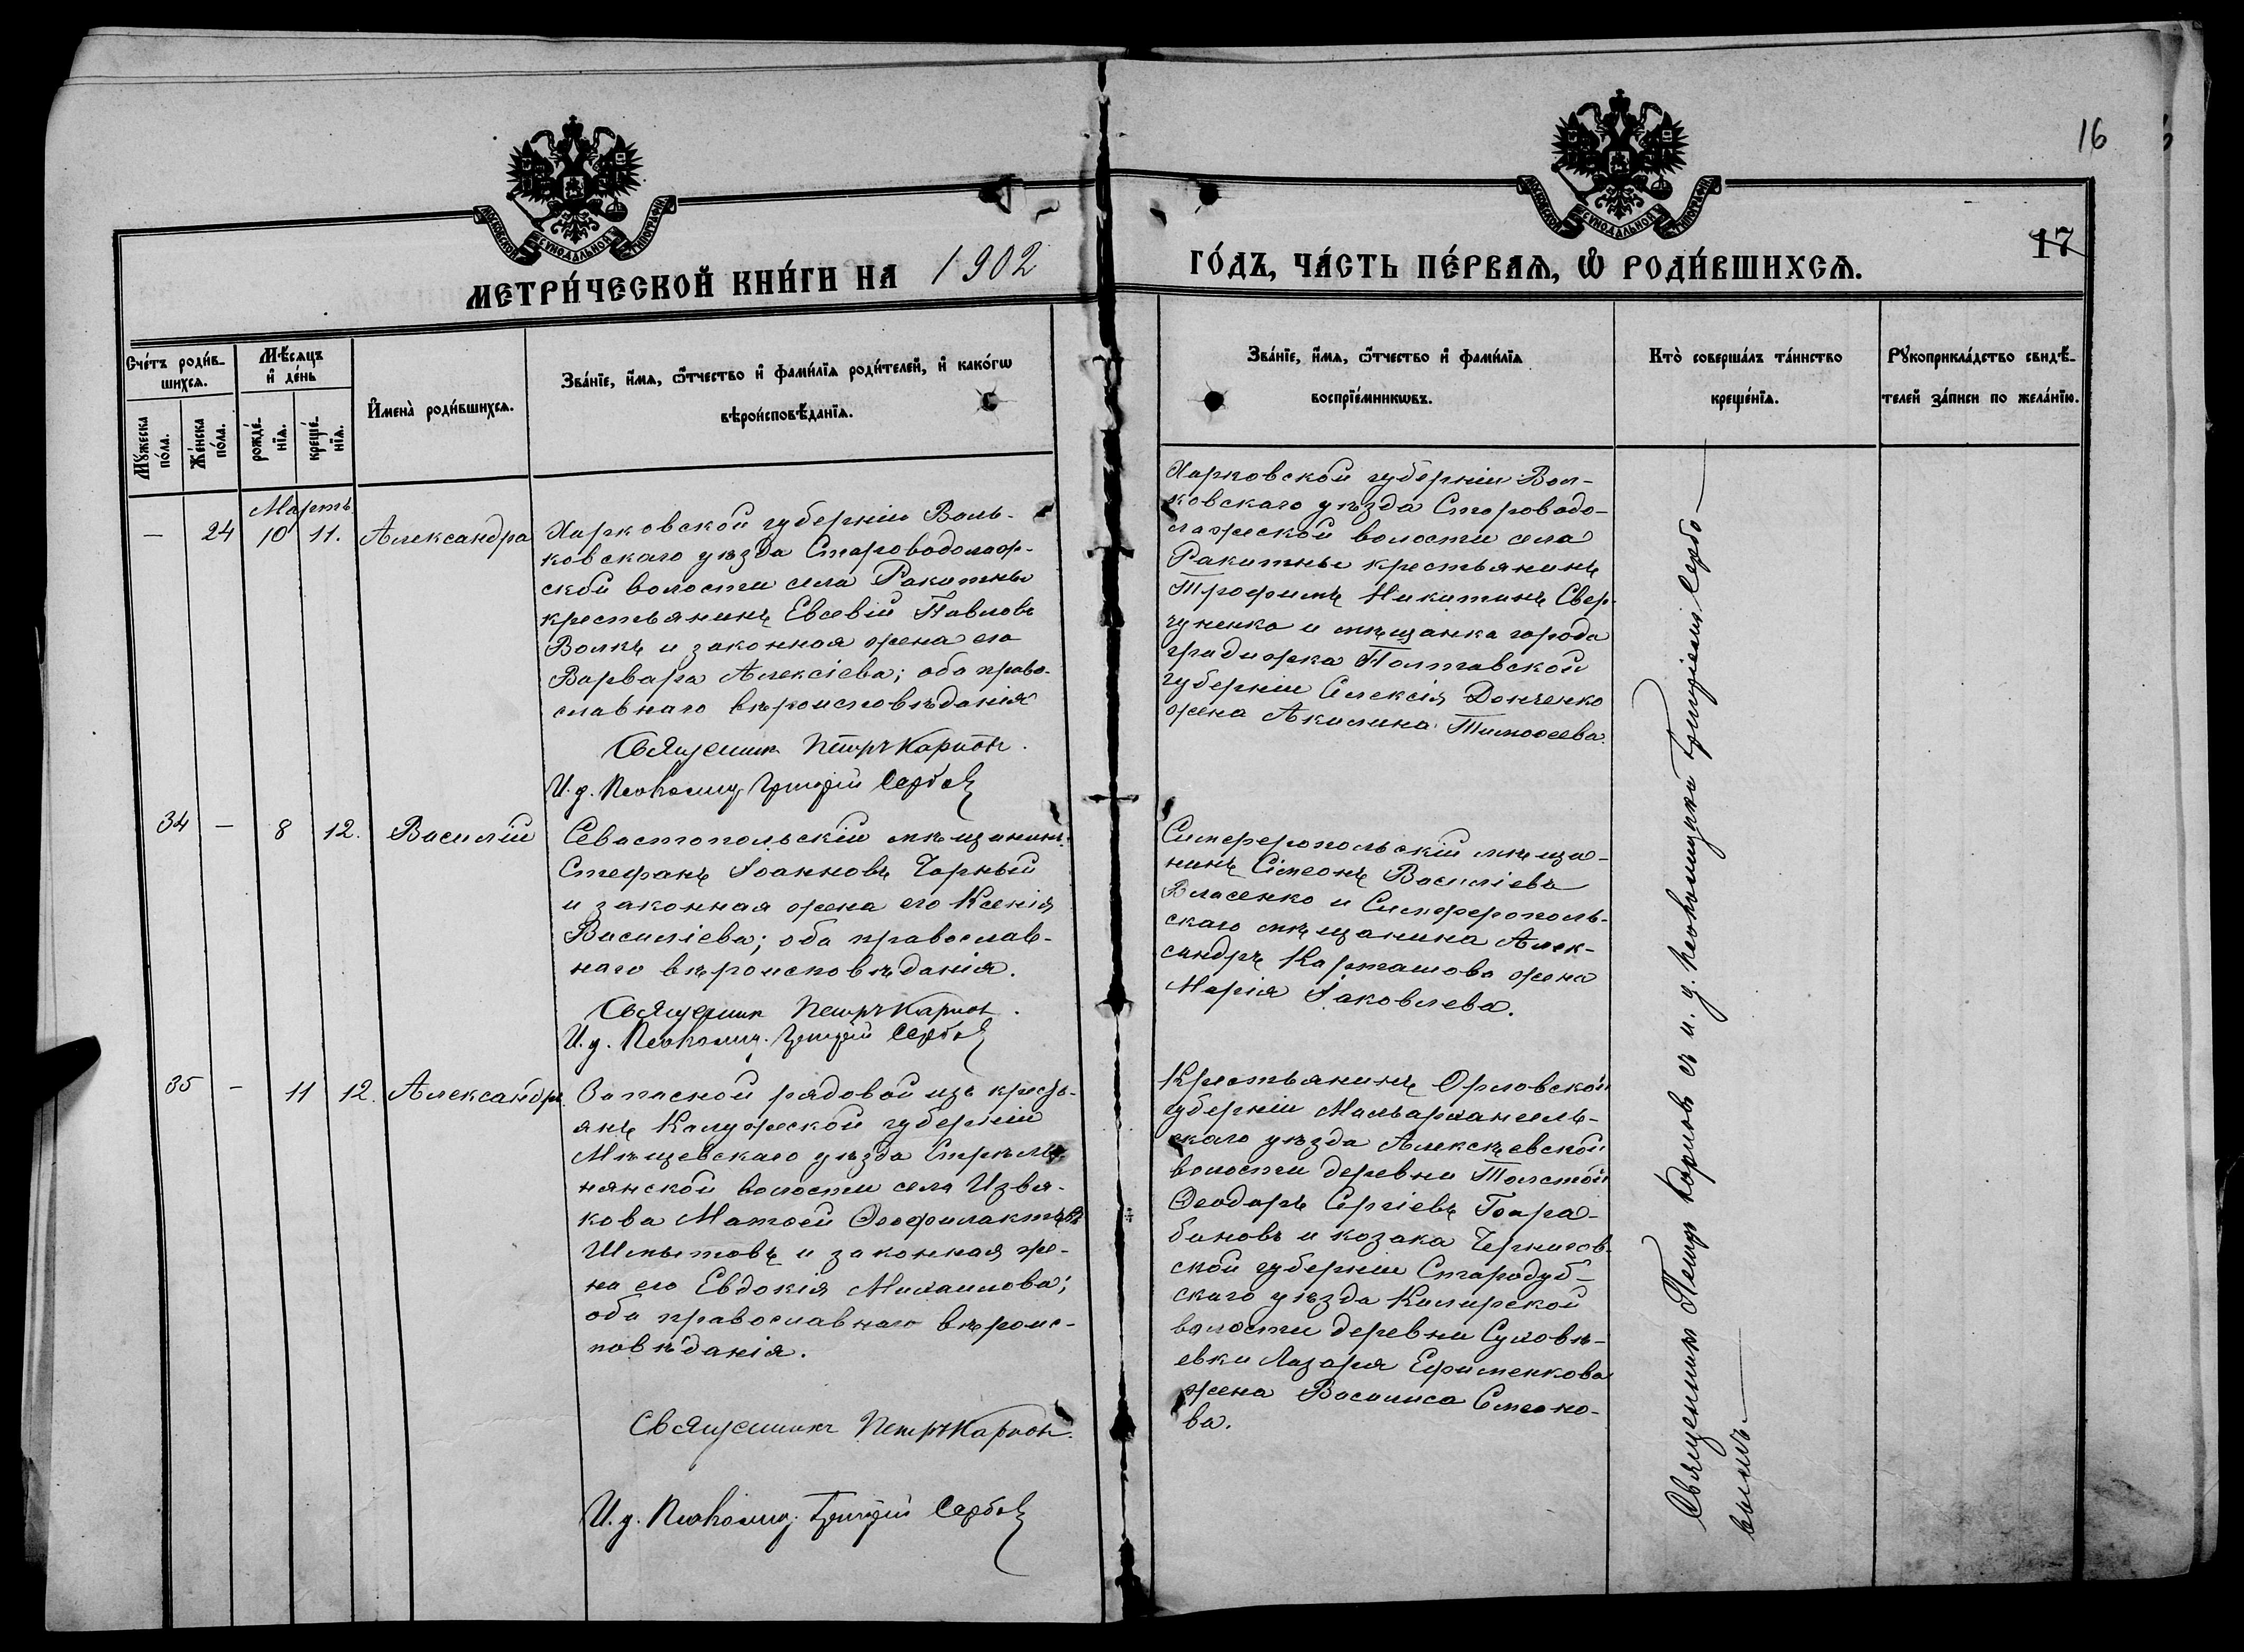 16
17
МОСКОВСКОЙ СѴНОДАЛЬНОЙ ТИПОГРАФІИ
МОСКОВСКОЙ СѴНОДАЛЬНОЙ ТИПОГРАФІИ
МЕТРИ́ЧЕСКОЙ КНИ́ГИ НА 1902
ГО́ДЪ, ЧА́СТЬ ПЕ́РВАѦ, Ѽ РОДИ́ВШИХСѦ.
Сче́тъ роди́в-
шихсѧ.
Мꙋ́жеска
по́ла.
Же́нска
по́ла.
Мѣ́сѧцъ
и҆ де́нь
рожде́-
нїѧ.
креще́-
нїѧ.
И҆мена̀ роди́вшихсѧ.
Зва́нїе, и҆́мѧ, ѻ҆́тчество и҆ фами́лїѧ роди́телей, и҆ како́гѡ
вѣроисповѣ́данїѧ.
Зва́нїе, и҆́мѧ, ѻ҆́тчество и҆ фами́лїѧ
воспрїе́мникѡвъ.
Кто̀ соверша́лъ та́инство
креще́нїѧ.
Рꙋкоприкла́дство свидѣ́-
телей за́писи по жела́нїю.
Мартъ
— 24 10 11. Александра
Харковской губерніи Валь-
ковскаго уѣзда Староводолаж-
ской волости села Ракитны
крестьянинъ Евсевій Павловъ
Волкъ и законная жена его
Варвара Алексіева; оба право-
славнаго вѣроисповѣданія
Священникъ Петръ Карповъ.
И. д. Псаломщ. Григорій Сербов
Харковской губерніи Вол-
ковскаго уѣзда Староводо-
лажской волости села
Ракитны крестьянинъ
Трофимъ Никитинъ Свер-
гуненко и мѣщанка города
градижка Полтавской
губерніи Алексія Донченко
жена Акилина Тимоѳеева.
34 — 8 12. Василій
Севастопольскій мѣщанинъ
Стефанъ Іоанновъ Чорный
и законная жена его Ксенія
Василіева; оба православ-
наго вѣроисповѣданія.
Священникъ Петръ Карповъ.
И. д. Псаломщ. Григорій Сербов
Симферопольскій мѣща-
нинъ Сімеонъ Василіевъ
Власенко и Симферополь-
скаго мѣщанина Алек-
сандръ Карташова жена
Марія Іаковлева.
35 — 11 12. Александръ.
Запасной рядовой изъ кресть-
янъ Калужской губерніи
Мѣщевскаго уѣзда
нянской волости села Извя-
кова Матѳей Ѳеофилактовъ
Шмытовъ и законная же-
на его Евдокія Михаилова;
оба православнаго вѣроис-
повѣданія.
Священникъ Петръ Карповъ.
И. д. Псаломщ. Григорій Сербов
Крестьянинъ Орловской
губерніи Малоархангель-
скаго уѣзда Алексѣевской
волости деревни Толстой
Ѳеодоръ Сергіевъ
бановъ и козака Чернигов-
ской губерніи Стародуб-
скаго уѣзда
волости деревни
евки Лазаря Ефименкова
жена Васалиса Симео-
ва.
Священникъ Петръ Карповъ съ и. д. псаломщика Григоріемъ Сербо-
вымъ.